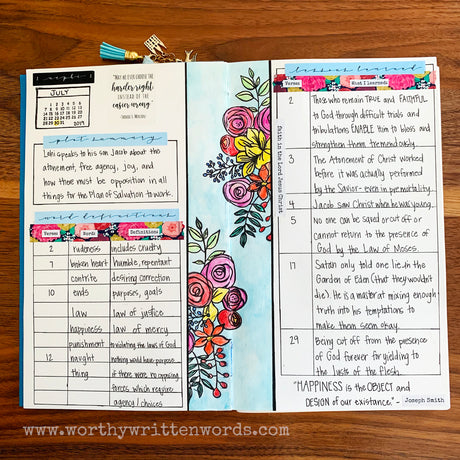 2 nephi 2
JULY
2019
"MAY WE EVER CHOOSE THE
harder right
INSTEAD OF THE
easier wrong."
plot summary
Lehi speaks to his son Jacob about the
atonement, free agency, joy, and
how there must be opposition in all
things for the Plan of Salvation to work.
word definitions
Verses Words Definitions
2 rudeness includes cruelty
broken heart humble, repentant
contrite desiring correction
10 ends purposes, goals
law law of justice
happiness law of mercy
punishment to violating the laws of God
12 naught nothing would have purpose
thing if there were no opposing
forces which require
agency/choices
Faith in the Lord Jesus Christ
lessons learned
Verses What I learned
2 Those who remain TRUE and FAITHFUL
to God through difficult trials and
tribulations ENABLE Him to bless and
strengthen them tremendously.
3 The Atonement of Christ worked
before it was actually performed
by the Savior-even in pre mortality.
4 Jacob saw Christ when he was young.
5 No one can be saved or cut off or
cannot return to the presence
of God by the Law of Moses.
17 Satan only told one lie in the
Garden of Eden (that they wouldn't
die). He is a master at mixing enough
truth into his temptations to
make them seem okay.
29 Being cut off from the presence
of God forever for yielding to
the lusts of the flesh.
"HAPPINESS is the OBJECT and
DESIGN of our existance." - Joseph Smith
www.worthywrittenwords.com